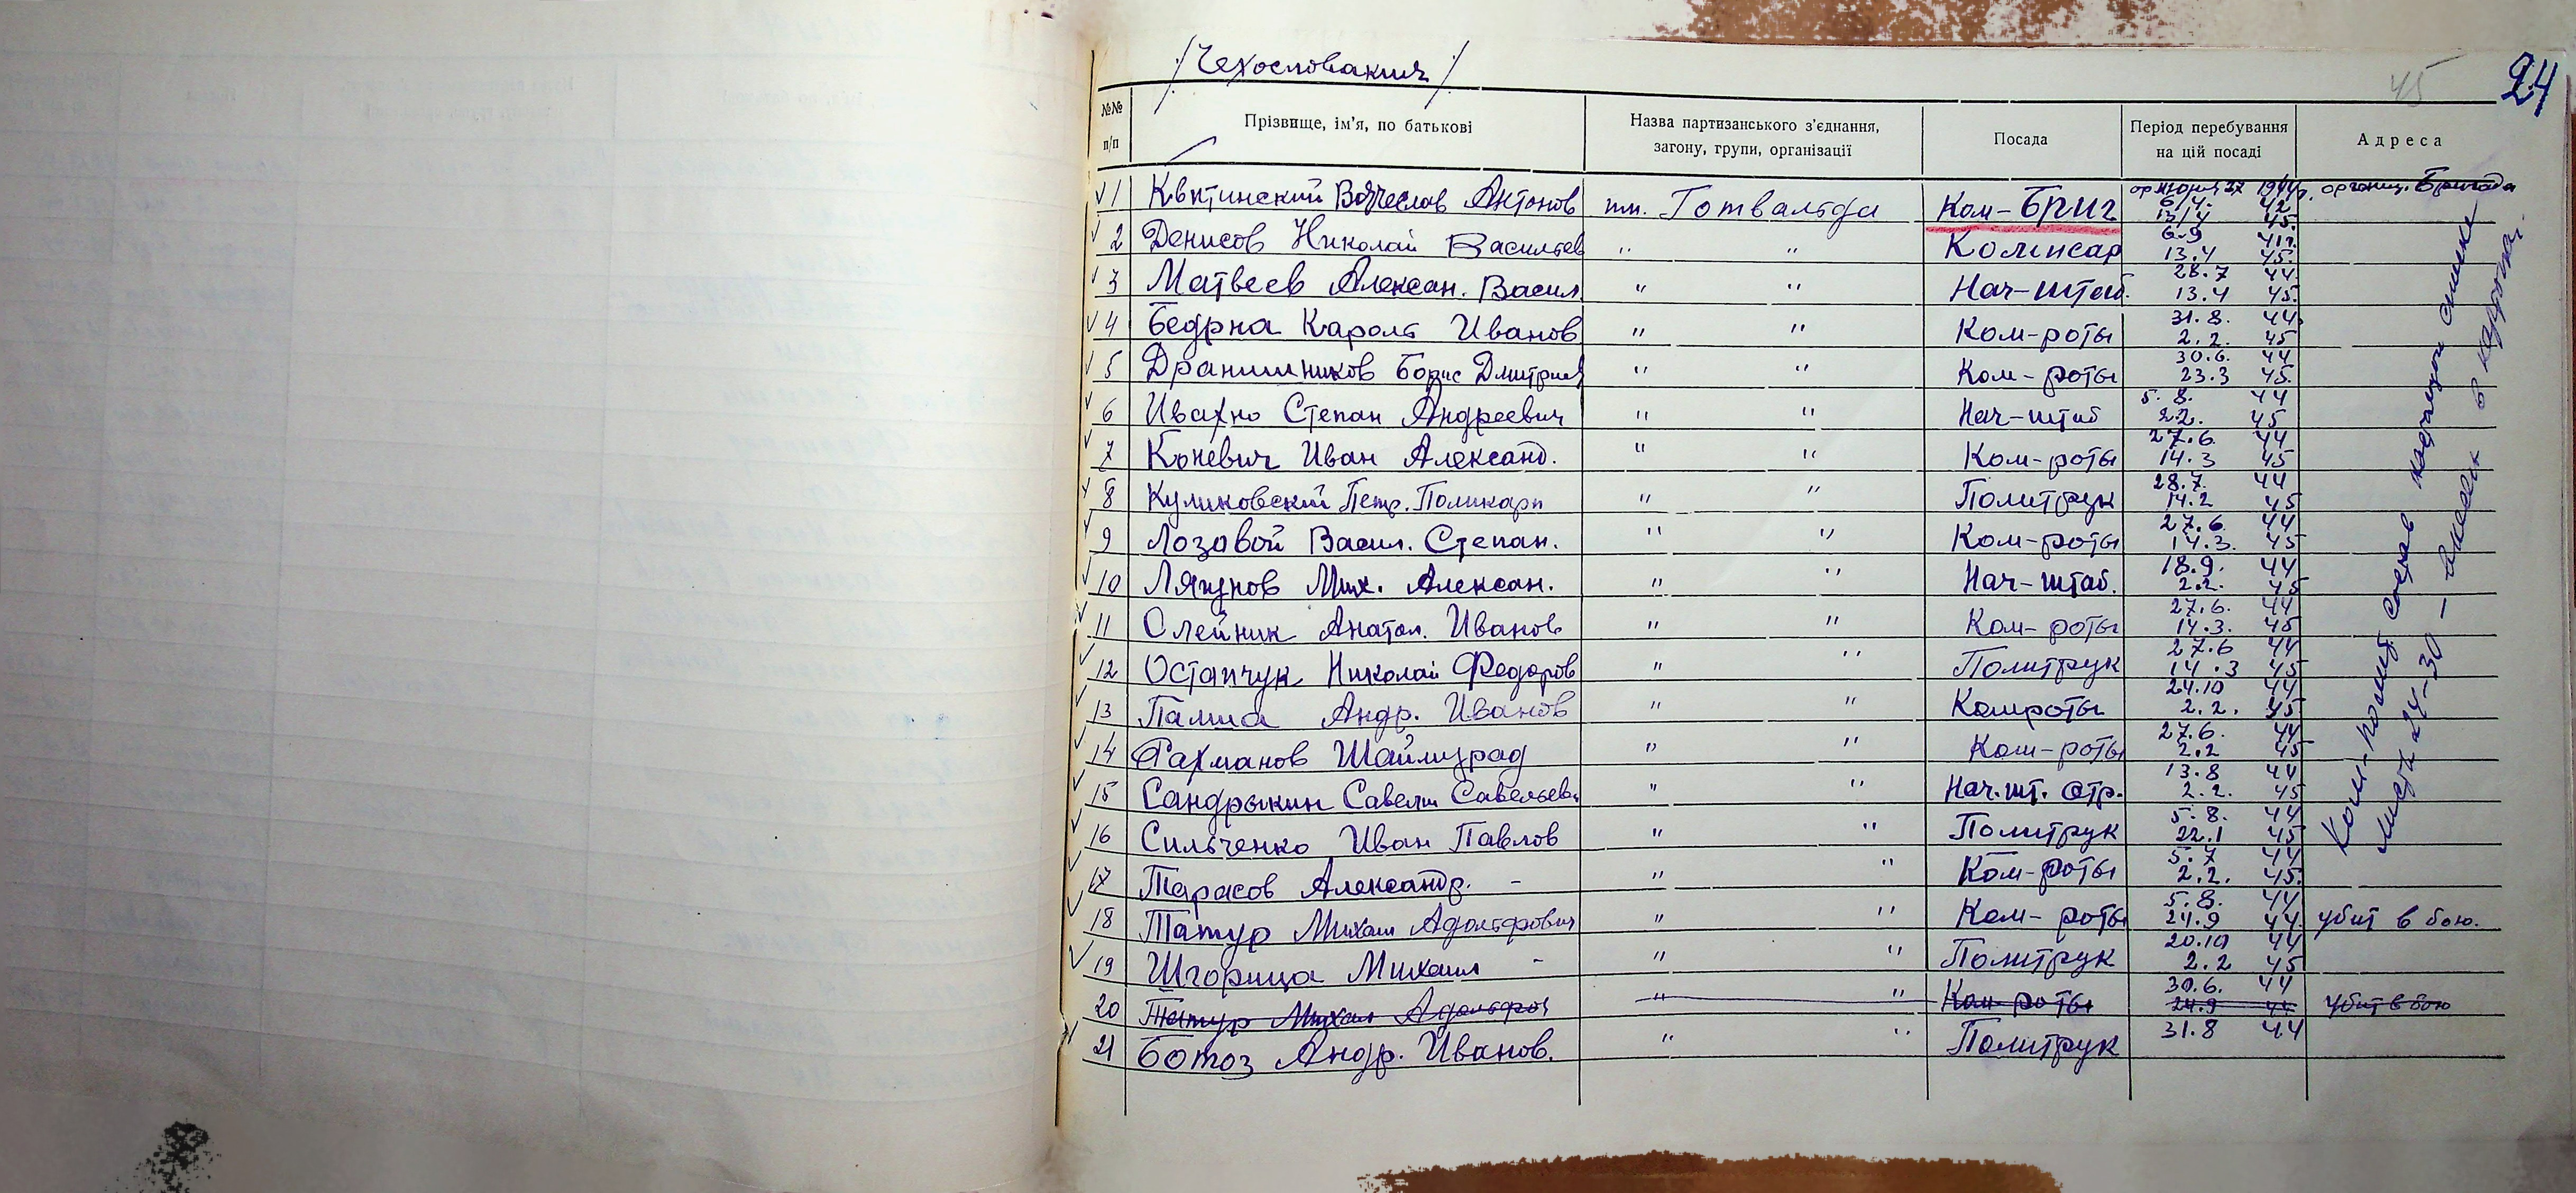 /Чехословакия/
45
24
№№ п/п
Прізвище, ім'я, по батькові
Назва партизанського з'єднання, загону, групи, організації
Посада
Період перебування на цій посаді
Адреса
1 Квитинский Вячеслав Антонов им. Готвальда Ком-Бриг 13/4 45. Бригада
2 Денисов Николай Васильев " " Комисар 6.9 41г. 13.4 45.
3 Матвеев Алексан. Васил. " " Нач-штаб. 28.7 44 13.4 45.
4 Бедрна Кароль Иванов " " Ком-роты 31.8. 44. 2.2. 45
5 Дранишников Борис Дмитриев " " Ком-роты 30.6. 44 23.3 45.
6 Ивахно Степан Андреевич " " Нач-штаб 5.8. 44 22. 45
7 Коневич Иван Александ. " " Ком-роты 27.6. 44 14.3 45
8 Куликовский Петр. Поликарп " " Политрук 28.7. 44 14.2 45
9 Лозовой Васил. Степан. " " Ком-роты 27.6. 44 14.3. 45
10 Ляпунов Мих. Алексан. " " Нач-штаб. 18.9. 44 2.2. 45
11 Олейник Анатол. Иванов " " Ком-роты 27.6. 44 14.3. 45
12 Остапчук Николай Федоров " " Политрук 27.6 44 14.3 45
13 Палша Андр. Иванов " " Комроты 24.10 44 2.2. 45
14 Рахманов Шаймурад " " Ком-роты 27.6. 44 2.2 45
15 Сандрыкин Савели Савельев. " " Нач.шт. отр. 13.8 44 2.2. 45
16 Сильченко Иван Павлов " " Политрук 5.8. 44 22.1 45
17 Тарасов Александр. - " " Ком-роты 5.7 44 2.2. 45.
18 Татур Михаил Адольфович " " Ком-роты 5.8. 44 24.9 44. убит в бою.
19 Шгорица Михаил - " " Политрук 20.10 44 2.2 45
20 Татур Михаил Адольфов " " Ком-роты 30.6. 44 24.9 44 убит в бою
21 Ботоз Андр. Иванов. " " Политрук 31.8 44
Ком-полит состав
листа 24-30 –